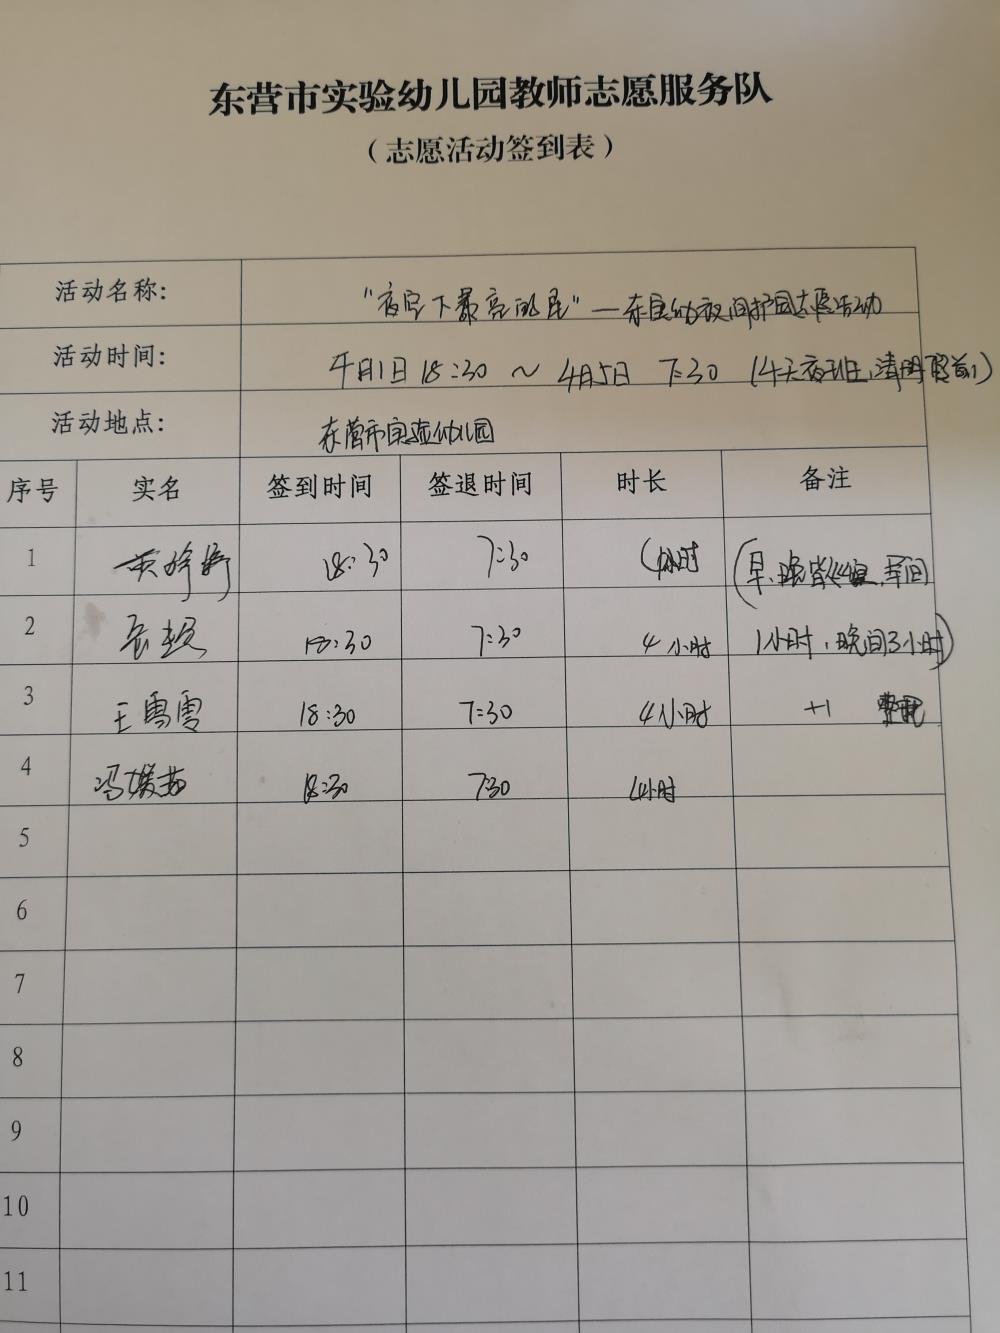 东营市实验幼儿园教师志愿服务队
（志愿活动签到表）
活动名称: "夜空下最亮的星"—东实幼夜间护园志愿活动
活动时间: 4月1日 18:30 ~ 4月5日 7:30 (4天夜班,清明假前)
活动地点: 东营市实验幼儿园
序号 实名 签到时间 签退时间 时长 备注
1 18:30 7:30 4小时 (早、晚皆巡逻,早间
2 18:30 7:30 4小时 1小时,晚间3小时)
3 王雪雯 18:30 7:30 4小时 +1
4 冯媛茹 18:30 7:30 4小时
5
6
7
8
9
10
11